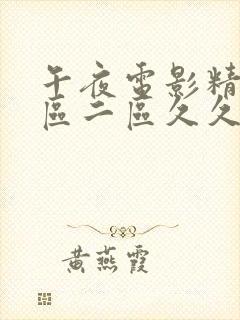 午夜電影精
區二區久久
黃燕霞